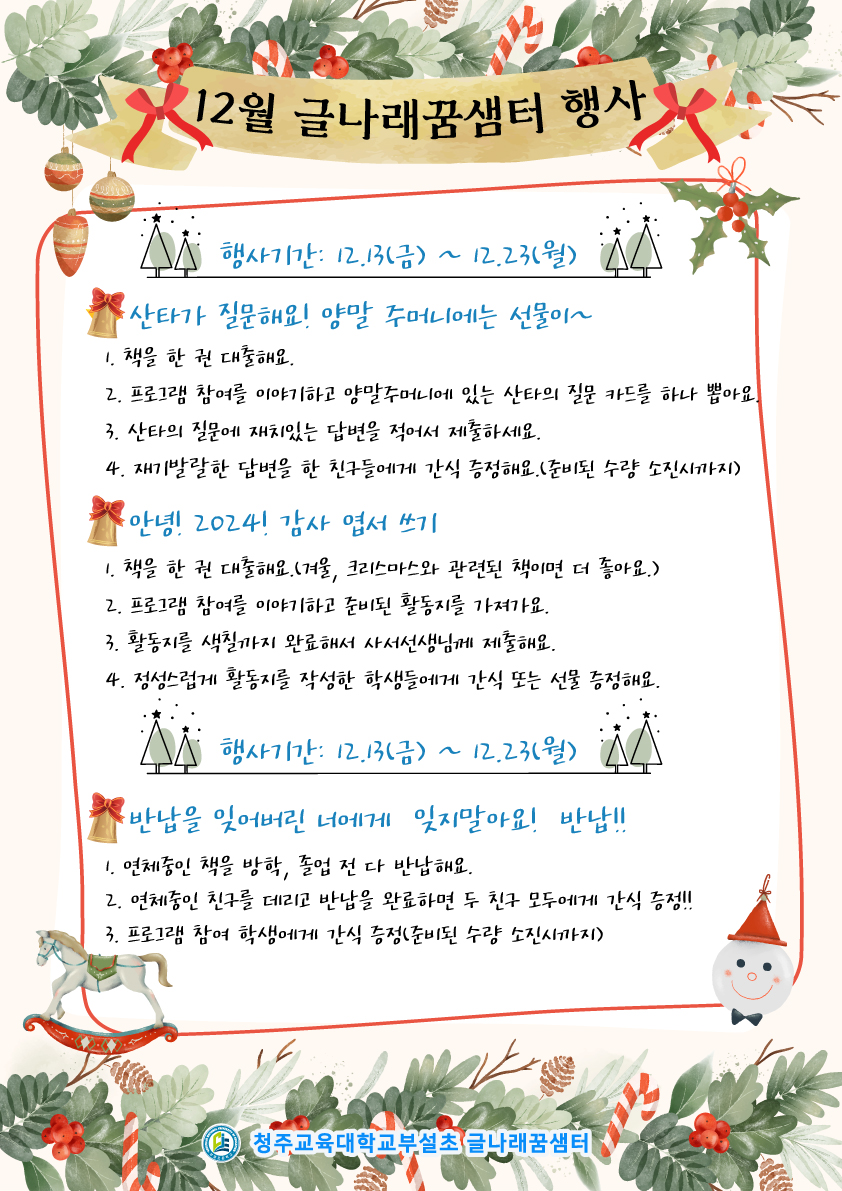 12월 글나래꿈샘터 행사
행사기간: 12.13(금) ~ 12.23(월)
산타가 질문해요! 양말 주머니에는 선물이~
1. 책을 한 권 대출해요.
2. 프로그램 참여를 이야기하고 양말주머니에 있는 산타의 질문 카드를 하나 뽑아요.
3. 산타의 질문에 재치있는 답변을 적어서 제출하세요.
4. 재기발랄한 답변을 한 친구들에게 간식 증정해요.(준비된 수량 소진시까지)
안녕! 2024! 감사 엽서 쓰기
1. 책을 한 권 대출해요.(겨울, 크리스마스와 관련된 책이면 더 좋아요.)
2. 프로그램 참여를 이야기하고 준비된 활동지를 가져가요.
3. 활동지를 색칠까지 완료해서 사서선생님께 제출해요.
4. 정성스럽게 활동지를 작성한 학생들에게 간식 또는 선물 증정해요.
행사기간: 12.13(금) ~ 12.23(월)
반납을 잊어버린 너에게 잊지말아요! 반납!!
1. 연체중인 책을 방학, 졸업 전 다 반납해요.
2. 연체중인 친구를 데리고 반납을 완료하면 두 친구 모두에게 간식 증정!!
3. 프로그램 참여 학생에게 간식 증정(준비된 수량 소진시까지)
청주교육대학교부설초 글나래꿈샘터